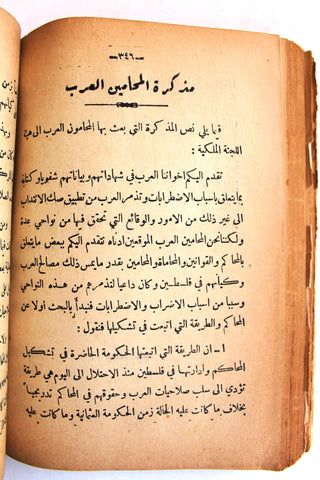 - ٣٤٦ -
مذكرة المحامين العرب
فيما يلي نص المذكرة التي بعث بها المحامون العرب الى هيئة
اللجنة الملكية :
تقدم اليكم اخواننا العرب في شهاداتهم وبياناتهم شفويا وكتابة
بما يتعلق باسباب الاضطرابات وتذمر العرب من تطبيق صك الانتداب
الى غير ذلك من الامور والوقائع التي تحقق فيها من نواحي عدة
ولكننا نحن المحامين العرب الموقعين ادناه تقدم اليكم ببعض ما يتعلق
بالمحاكم والقوانين والمحاماة والمحامين بقدر ما يمس ذلك مصالح العرب
وكيانهم في فلسطين وكان داعيا لتذمرهم من هذه النواحي
وسببا من اسباب الاضراب والاضطرابات فنبدأ بالبحث اولا عن
المحاكم والطريقة التي اتبعت في تشكيلها فنقول :
١ – ان الطريقة التي اتبعتها الحكومة الحاضرة في تشكيل
المحاكم وادارتها في فلسطين منذ الاحتلال الى اليوم هي طريقة
تؤدي الى سلب صلاحيات العرب وحقوقهم في المحاكم تدريجياً
بخلاف ما كانت عليه الحالة زمن الحكومة العثمانية وما كانت عليه